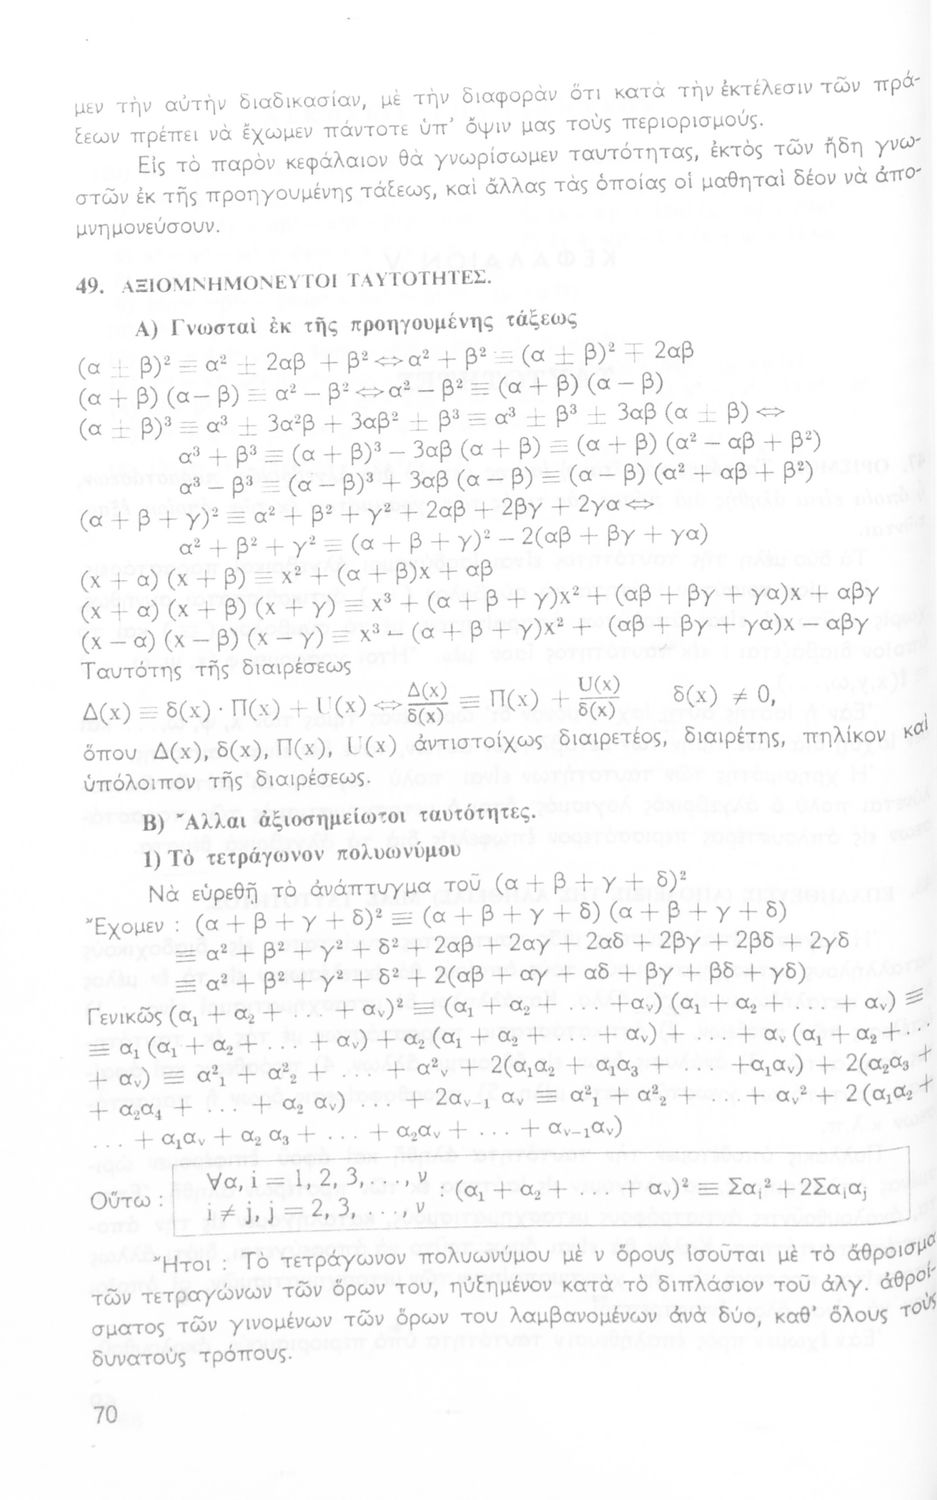 μεν τὴν αὐτὴν διαδικασίαν, μὲ τὴν διαφορὰν ὅτι κατὰ τὴν ἐκτέλεσιν τῶν πρά-
ξεων πρέπει νὰ ἔχωμεν πάντοτε ὑπ' ὄψιν μας τοὺς περιορισμούς.
Εἰς τὸ παρὸν κεφάλαιον θὰ γνωρίσωμεν ταυτότητας, ἐκτὸς τῶν ἤδη γνω-
στῶν ἐκ τῆς προηγουμένης τάξεως, καὶ ἄλλας τὰς ὁποίας οἱ μαθηταὶ δέον νὰ ἀπο-
μνημονεύσουν.
49. ΑΞΙΟΜΝΗΜΟΝΕΥΤΟΙ ΤΑΥΤΟΤΗΤΕΣ.
Α) Γνωσταὶ ἐκ τῆς προηγουμένης τάξεως
(α ± β)² ≡ α² ± 2αβ + β² <=> α² + β² ≡ (α ± β)² ∓ 2αβ
(α + β) (α – β) ≡ α² – β² <=> α² – β² ≡ (α + β) (α – β)
(α ± β)³ ≡ α³ ± 3α²β + 3αβ² ± β³ ≡ α³ ± β³ ± 3αβ (α ± β) <=>
α³ + β³ ≡ (α + β)³ – 3αβ (α + β) ≡ (α + β) (α² – αβ + β²)
α³ – β³ ≡ (α – β)³ + 3αβ (α – β) ≡ (α – β) (α² + αβ + β²)
(α + β + γ)² ≡ α² + β² + γ² + 2αβ + 2βγ + 2γα <=>
α² + β² + γ² ≡ (α + β + γ)² – 2(αβ + βγ + γα)
(x + α) (x + β) ≡ x² + (α + β)x + αβ
(x + α) (x + β) (x + γ) ≡ x³ + (α + β + γ)x² + (αβ + βγ + γα)x + αβγ
(x – α) (x – β) (x – γ) ≡ x³ – (α + β + γ)x² + (αβ + βγ + γα)x – αβγ
Ταυτότης τῆς διαιρέσεως
Δ(x) ≡ δ(x) · Π(x) + U(x) <=> Δ(x)/δ(x) ≡ Π(x) + U(x)/δ(x) δ(x) ≠ 0,
ὅπου Δ(x), δ(x), Π(x), U(x) ἀντιστοίχως διαιρετέος, διαιρέτης, πηλίκον καὶ
ὑπόλοιπον τῆς διαιρέσεως.
Β) Ἄλλαι ἀξιοσημείωτοι ταυτότητες.
1) Τὸ τετράγωνον πολυωνύμου
Νὰ εὑρεθῇ τὸ ἀνάπτυγμα τοῦ (α + β + γ + δ)²
Ἔχομεν : (α + β + γ + δ)² ≡ (α + β + γ + δ) (α + β + γ + δ)
≡ α² + β² + γ² + δ² + 2αβ + 2αγ + 2αδ + 2βγ + 2βδ + 2γδ
≡ α² + β² + γ² + δ² + 2(αβ + αγ + αδ + βγ + βδ + γδ)
Γενικῶς (α₁ + α₂ + . . . + αᵥ)² ≡ (α₁ + α₂ + . . . +αᵥ) (α₁ + α₂ + . . . + αᵥ) ≡
≡ α₁ (α₁ + α₂ + . . . + αᵥ) + α₂ (α₁ + α₂ + . . . + αᵥ) + . . . + αᵥ (α₁ + α₂ + . .
+ αᵥ) ≡ α²₁ + α²₂ + . . . + α²ᵥ + 2(α₁α₂ + α₁α₃ + . . . +α₁αᵥ) + 2(α₂α₃ +
+ α₂α₄ + . . . + α₂ αᵥ) . . . + 2αᵥ₋₁ αᵥ ≡ α²₁ + α²₂ + . . . + αᵥ² + 2 (α₁α₂ +
. . . + α₁αᵥ + α₂ α₃ + . . . + α₂αᵥ + . . . + αᵥ₋₁αᵥ)
Οὕτω : ∀α, i = 1, 2, 3, . . ., ν : (α₁ + α₂ + . . . + αᵥ)² ≡ Σαᵢ² + 2Σαᵢαⱼ
i ≠ j, j = 2, 3, . . ., ν
Ἤτοι : Τὸ τετράγωνον πολυωνύμου μὲ ν ὅρους ἰσοῦται μὲ τὸ ἄθροισμα
τῶν τετραγώνων τῶν ὅρων του, ηὐξημένον κατὰ τὸ διπλάσιον τοῦ ἀλγ. ἀθροί-
σματος τῶν γινομένων τῶν ὅρων του λαμβανομένων ἀνὰ δύο, καθ' ὅλους τοὺς
δυνατοὺς τρόπους.
70